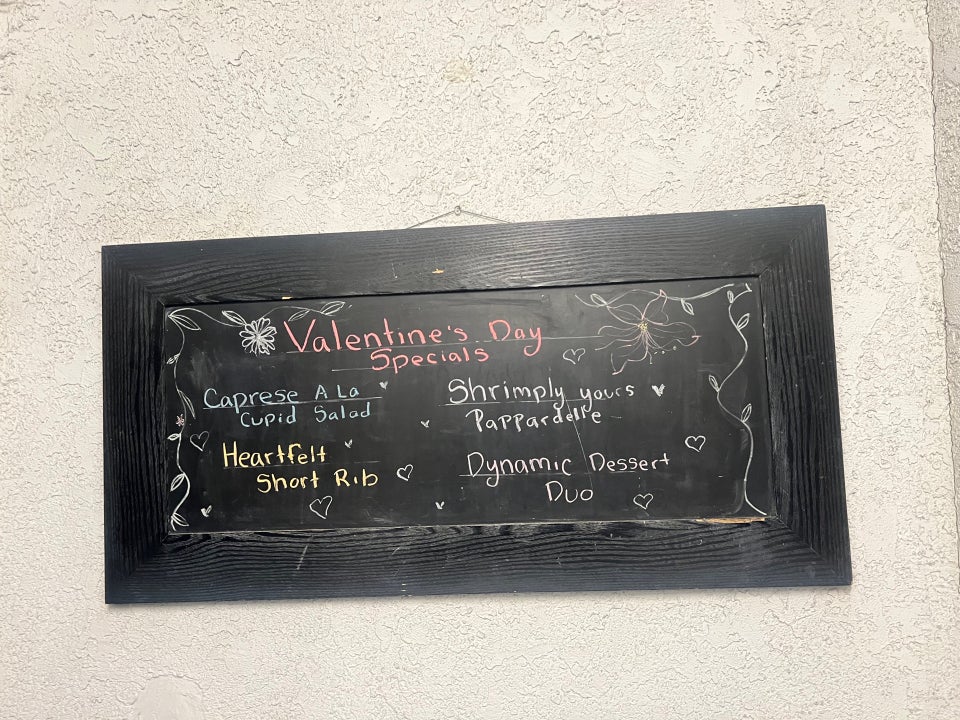 Valentine's Day
Specials
Caprese A La
Cupid Salad
Heartfelt
Short Rib
Shrimply yours
Pappardelle
Dynamic Dessert
Duo